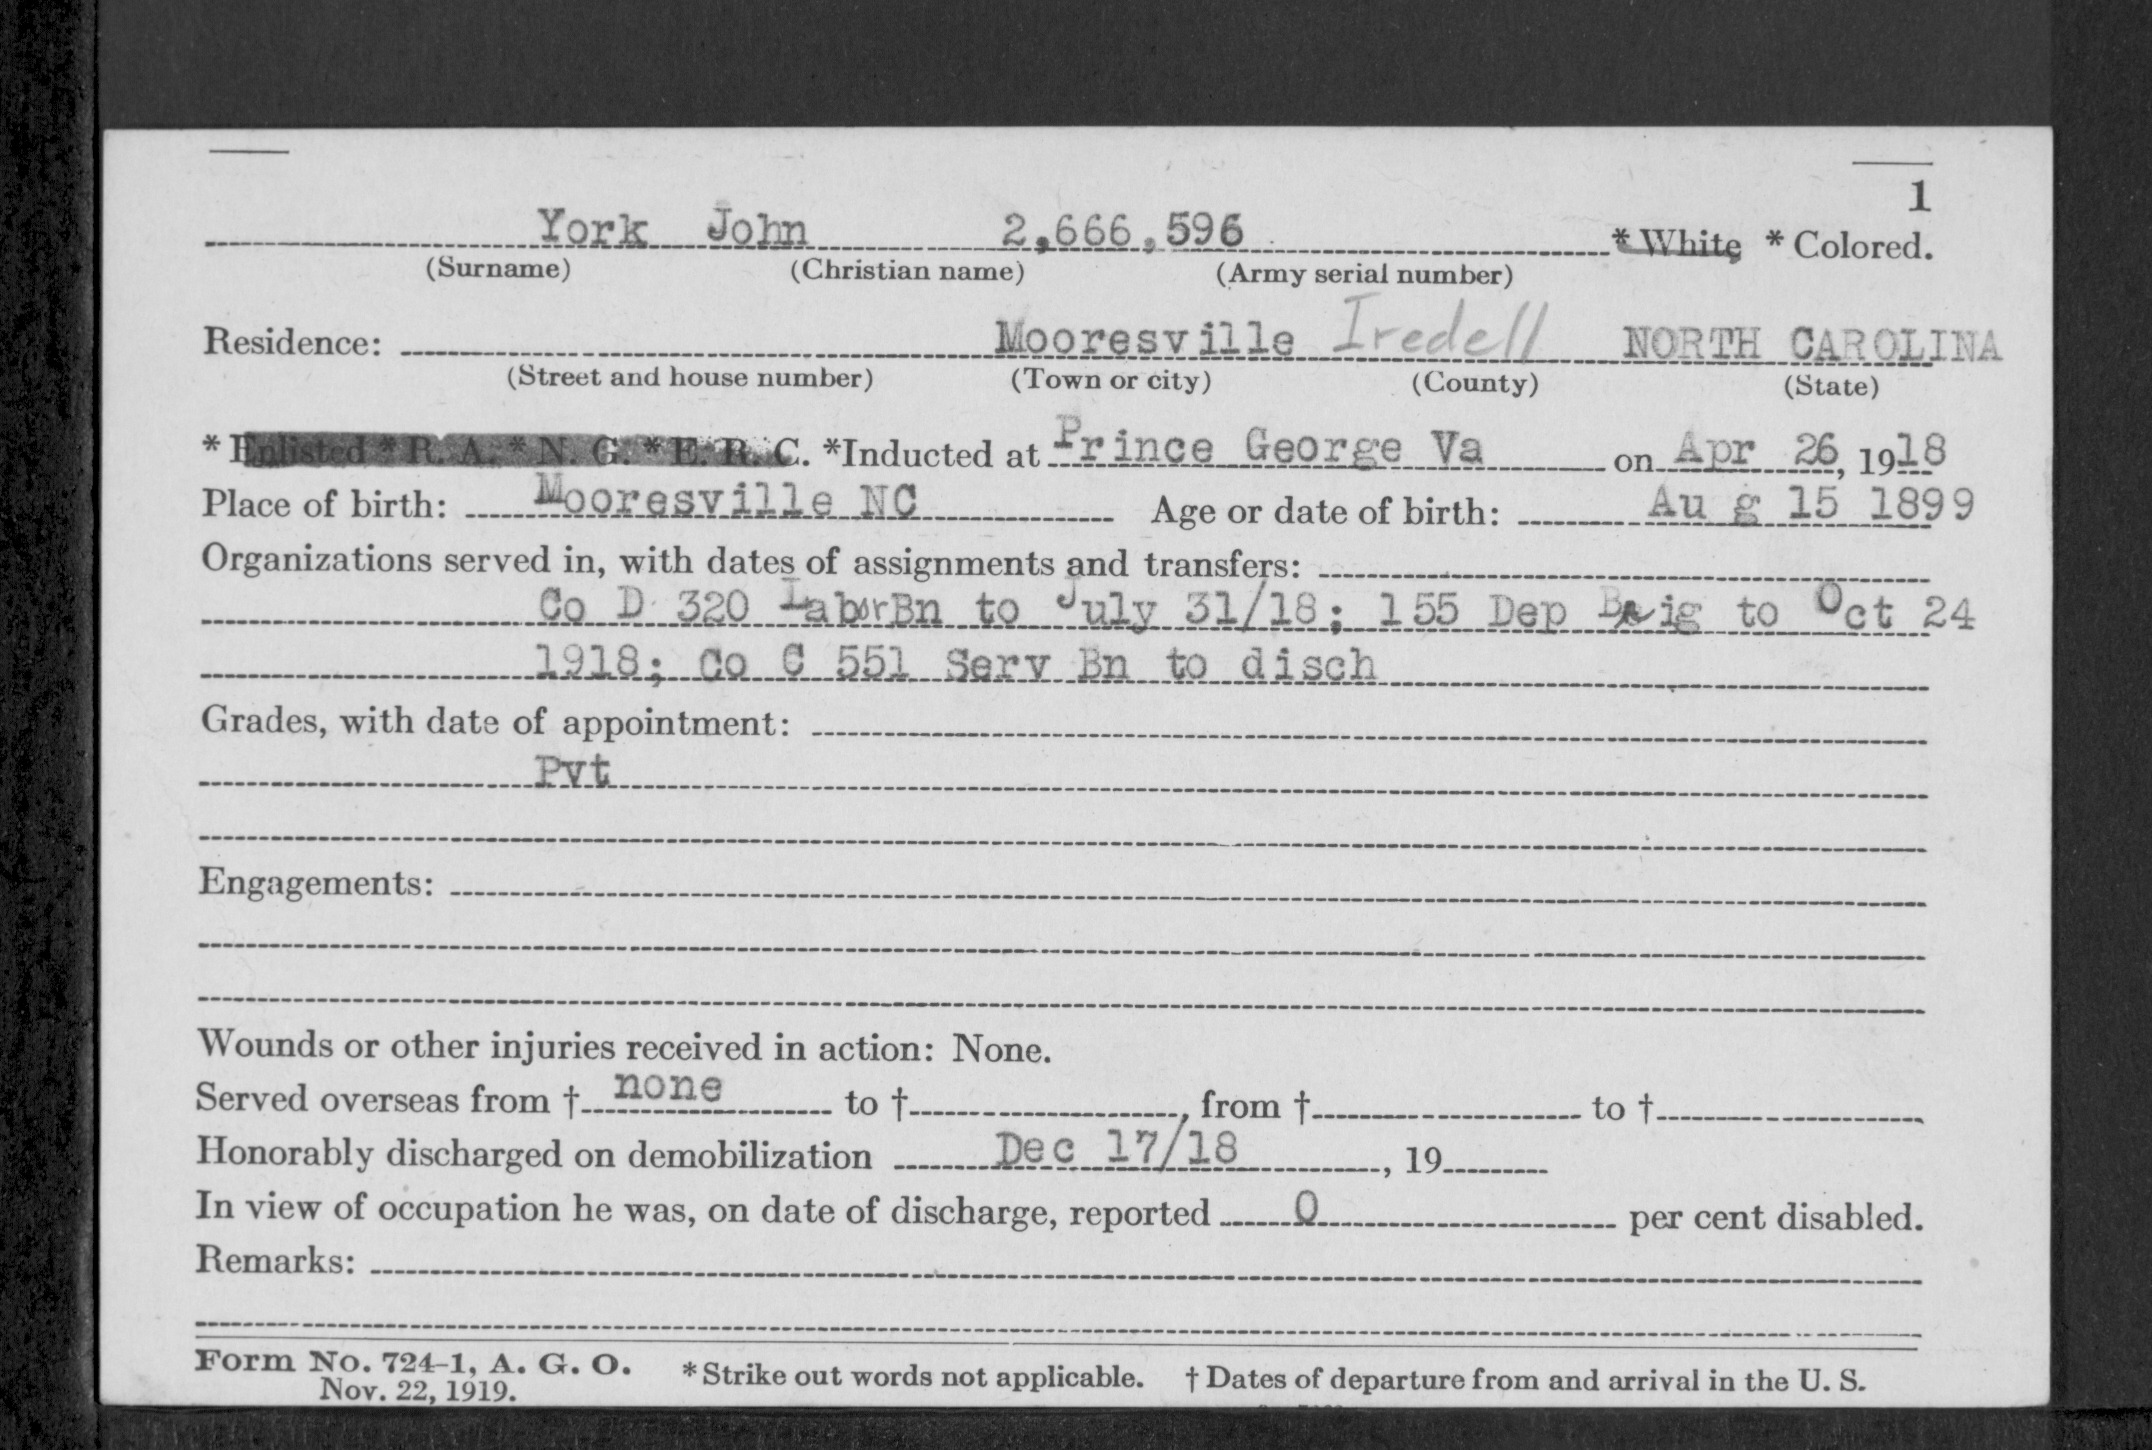 1
York John 2,666,596 * White, * Colored.
(Surname) (Christian name) (Army serial number)
Residence: Mooresville Iredell NORTH CAROLINA
(Street and house number) (Town or city) (County) (State)
* Enlisted * R. A. * N. G. * E. R. C. *Inducted at Prince George Va on Apr 26, 1918
Place of birth: Mooresville NC Age or date of birth: Au g 15 1899
Organizations served in, with dates of assignments and transfers:
Co D 320 LaborBn to July 31/18; 155 Dep Brig to Oct 24
1918; Co C 551 Serv Bn to disch
Grades, with date of appointment:
Pvt
Engagements:
Wounds or other injuries received in action: None.
Served overseas from † none to †, from † to †
Honorably discharged on demobilization Dec 17/18, 19
In view of occupation he was, on date of discharge, reported 0 per cent disabled.
Remarks:
Form No. 724-1, A. G. O. * Strike out words not applicable. † Dates of departure from and arrival in the U. S.
Nov. 22, 1919.